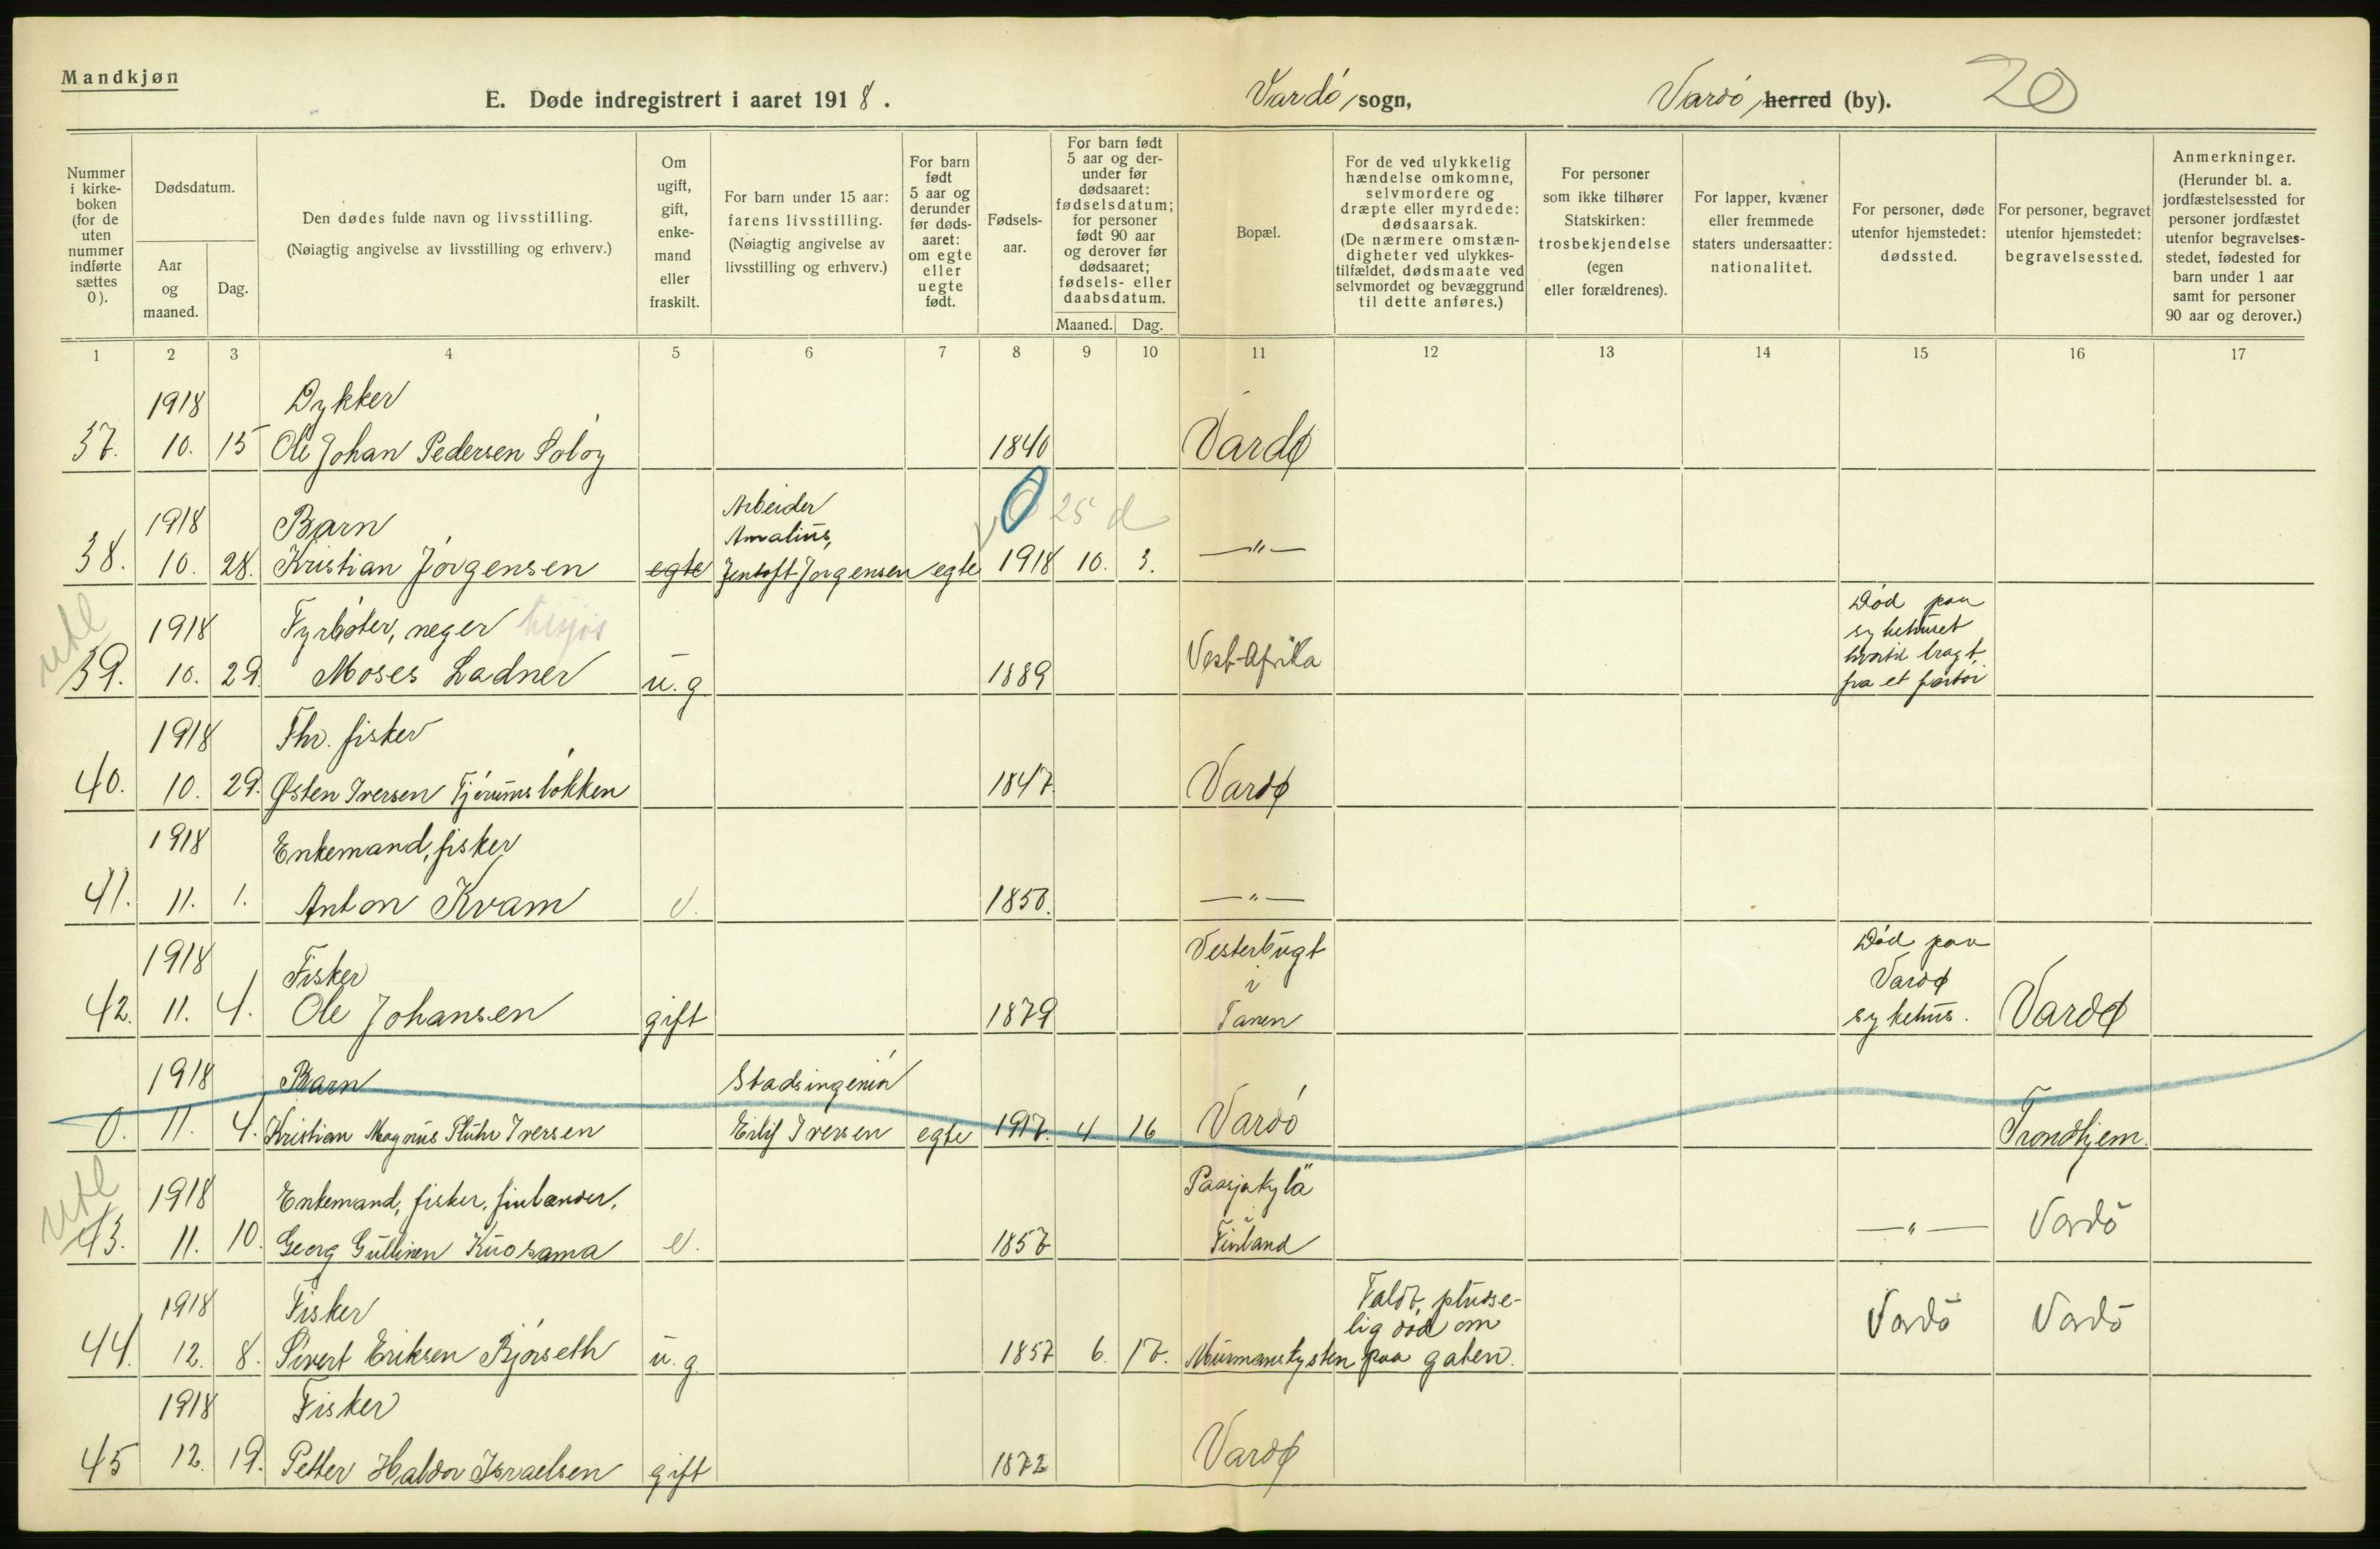 Mandkjøn
E. Døde indregistrert i aaret 1918.
Vardö sogn,
Vardö herred (by).
20
Nummer i kirke-boken (for de uten nummer indførte sættes 0).
Dødsdatum.
Aar og maaned.
Dag.
Den dødes fulde navn og livsstilling.
(Nøiagtig angivelse av livsstilling og erhverv.)
Om ugift, gift, enke-mand eller fraskilt.
For barn under 15 aar: farens livsstilling.
(Nøiagtig angivelse av livsstilling og erhverv.)
For barn født 5 aar og derunder før døds-aaret: om egte eller uegte født.
Fødsels-aar.
For barn født 5 aar og der-under før dødsaaret: fødselsdatum; for personer født 90 aar og derover før dødsaaret; fødsels- eller daabsdatum.
Maaned. Dag.
Bopæl.
For de ved ulykkelig hændelse omkomne, selvmordere og dræpte eller myrdede: dødsaarsak.
(De nærmere omstæn-digheter ved ulykkes-tilfældet, dødsmaate ved selvmordet og bevæggrund til dette anføres.)
For personer som ikke tilhører Statskirken: trosbekjendelse (egen eller forældrenes).
For lapper, kvæner eller fremmede staters undersaatter: nationalitet.
For personer, døde utenfor hjemstedet: dødssted.
For personer, begravet utenfor hjemstedet: begravelsessted.
Anmerkninger.
(Herunder bl. a. jordfæstelsessted for personer jordfæstet utenfor begravelses-stedet, fødested for barn under 1 aar samt for personer 90 aar og derover.)
1 2 3 4 5 6 7 8 9 10 11 12 13 14 15 16 17
1918 Dykker
37. 10. 15 Ole Johan Pedersen Soløy 1840 Vardø
Arbeider 0 25 d
1918 Barn Amalius,
38. 10. 28. Kristian Jörgensen egte Jentoft Jörgensen egte 1918 10. 3. —"—
utl
1918 Fyrböter, neger Død paa sykehuset hvortil bragt fra et fartöi
39. 10. 29. Moses Ladner u.g 1889 Vest-Afrika
1918 Fhv. fisker
40. 10. 29. Østen Iversen Fjörumslökken 1847 Vardø
1918 Enkemand, fisker
41. 11. 1. Anton Kvam e. 1850. —"—
1918 Fisker Vesterbugt i Tanen Död paa Vardø sykehus.
42. 11. 4. Ole Johansen gift 1879 Vardø
1918 Barn Stadsingeniör
0. 11. 4. Kristian Magnus Iversen Eilif Iversen egte 1917. 4 16 Vardö Trondhjem.
utl
1918 Enkemand, fisker, finlænder. Paasjakylä i Finland
43. 11. 10. Georg Gullinen Kuosama e. 1857 —"— Vardö
1918 Fisker Faldt pludse-lig död om paa gaten.
44. 12. 8. Sivert Eriksen Bjørseth u.g 1857 6. 17. Murmanskysten Vardö Vardö
1918 Fisker
45 12. 19. Petter Haldor Israelsen gift 1872 Vardø